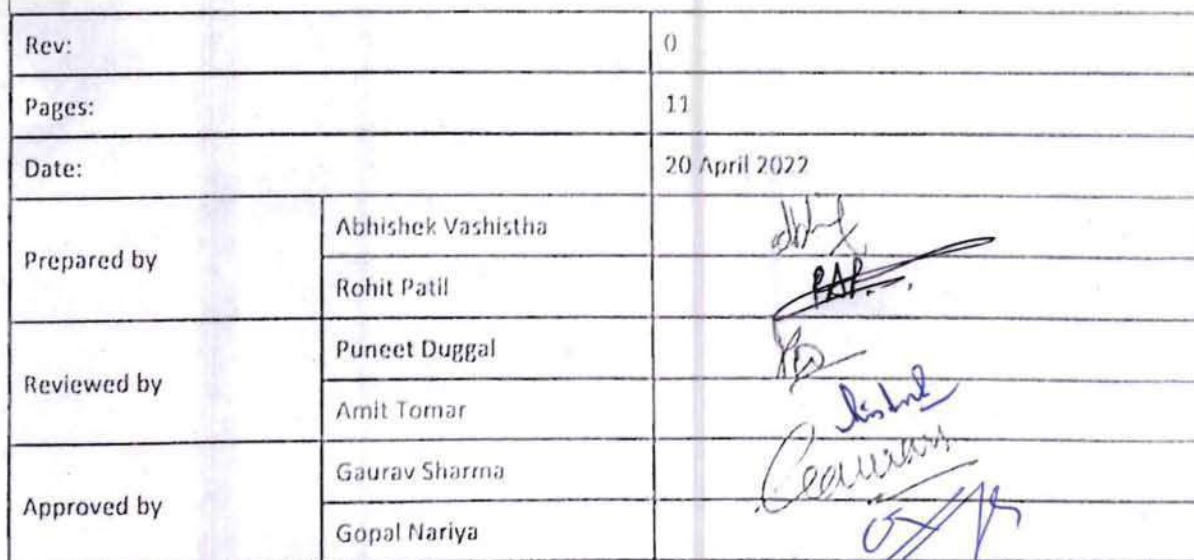 Rev: 0
Pages: 11
Date: 20 April 2022
Prepared by
Abhishek Vashistha
Rohit Patil PAP...
Reviewed by
Puneet Duggal
Amit Tomar
Approved by
Gaurav Sharma
Gopal Nariya